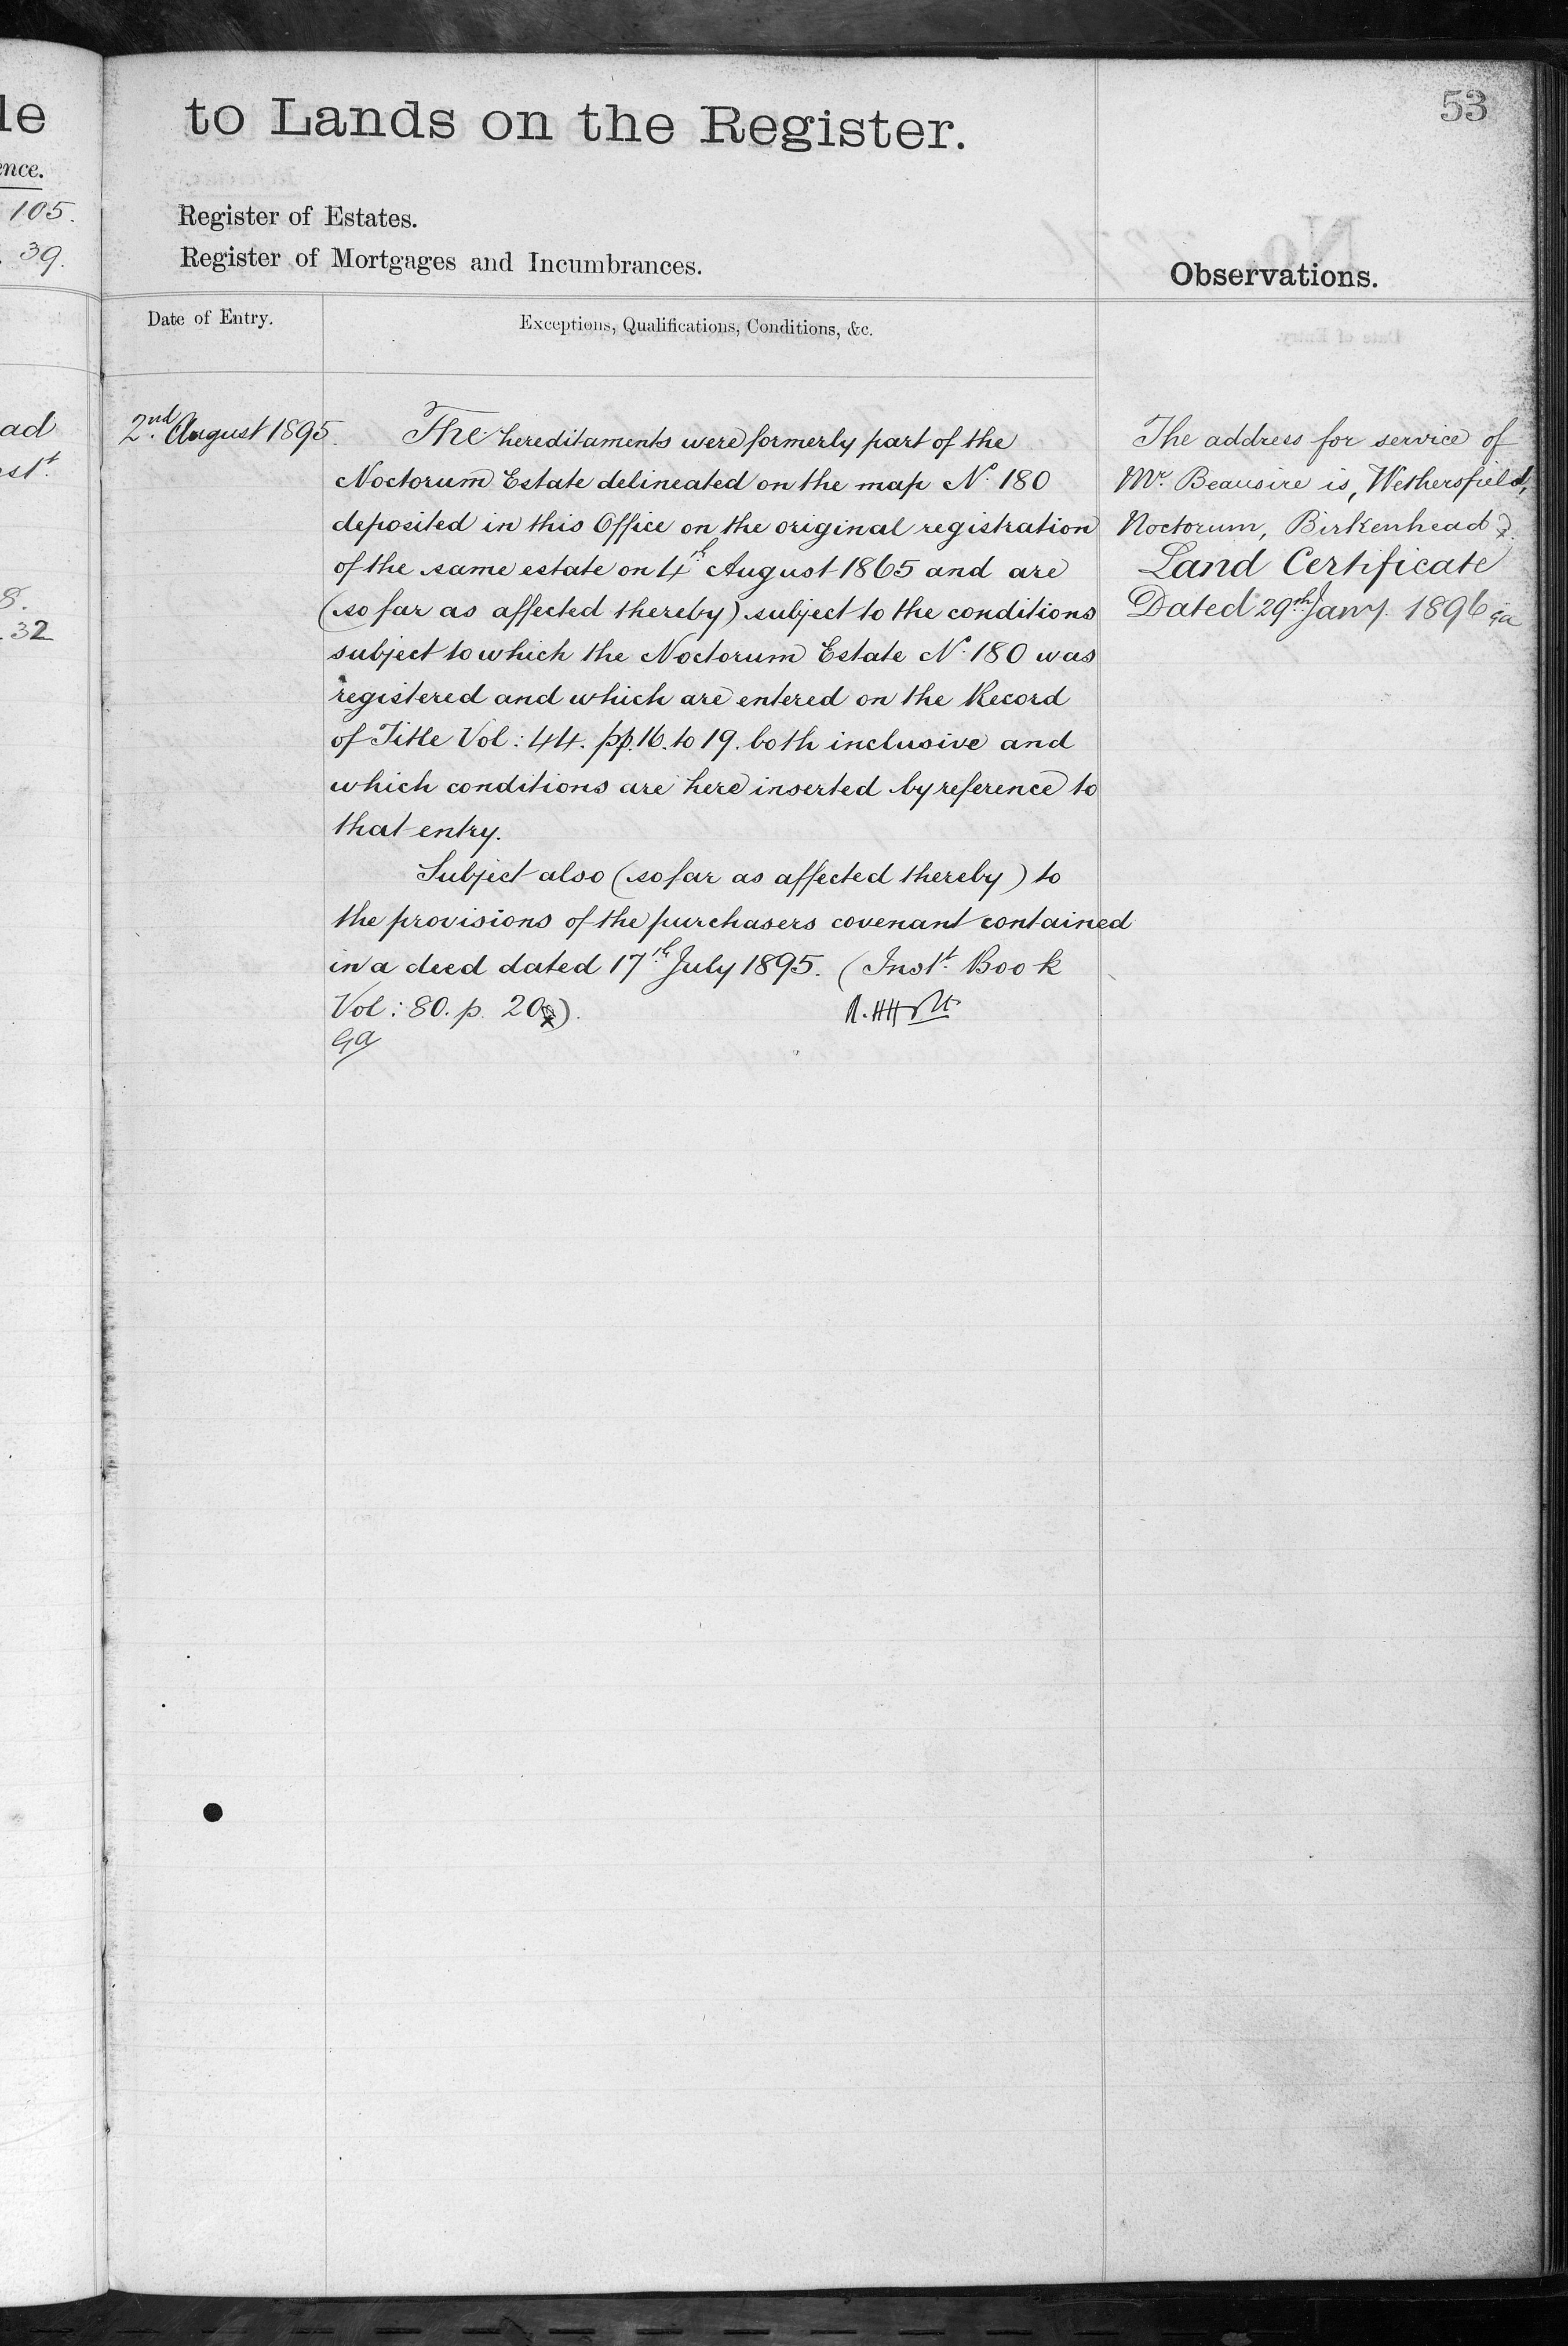 le
to Lands on the Register.
53
ence.
105.
39.
Register of Estates.
Register of Mortgages and Incumbrances.
Observations.
Date of Entry.
Exceptions, Qualifications, Conditions, &c.
ad
st
8.
32
2nd August 1895.
The hereditaments were formerly part of the
Noctorum Estate delineated on the map No. 180
deposited in this Office on the original registration
of the same estate on 4th August 1865 and are
(so far as affected thereby) subject to the conditions
subject to which the Noctorum Estate No. 180 was
registered and which are entered on the Record
of Title Vol: 44. pp. 16. to 19. both inclusive and
which conditions are here inserted by reference to
that entry.
Subject also (so far as affected thereby) to
the provisions of the purchasers covenant contained
in a deed dated 17th July 1895. (Inst. Book
Vol: 80. p.
The address for service of
Mr. Beausire is, Wethersfield,
Noctorum, Birkenhead
Land Certificate
Dated 29th Jany. 1896